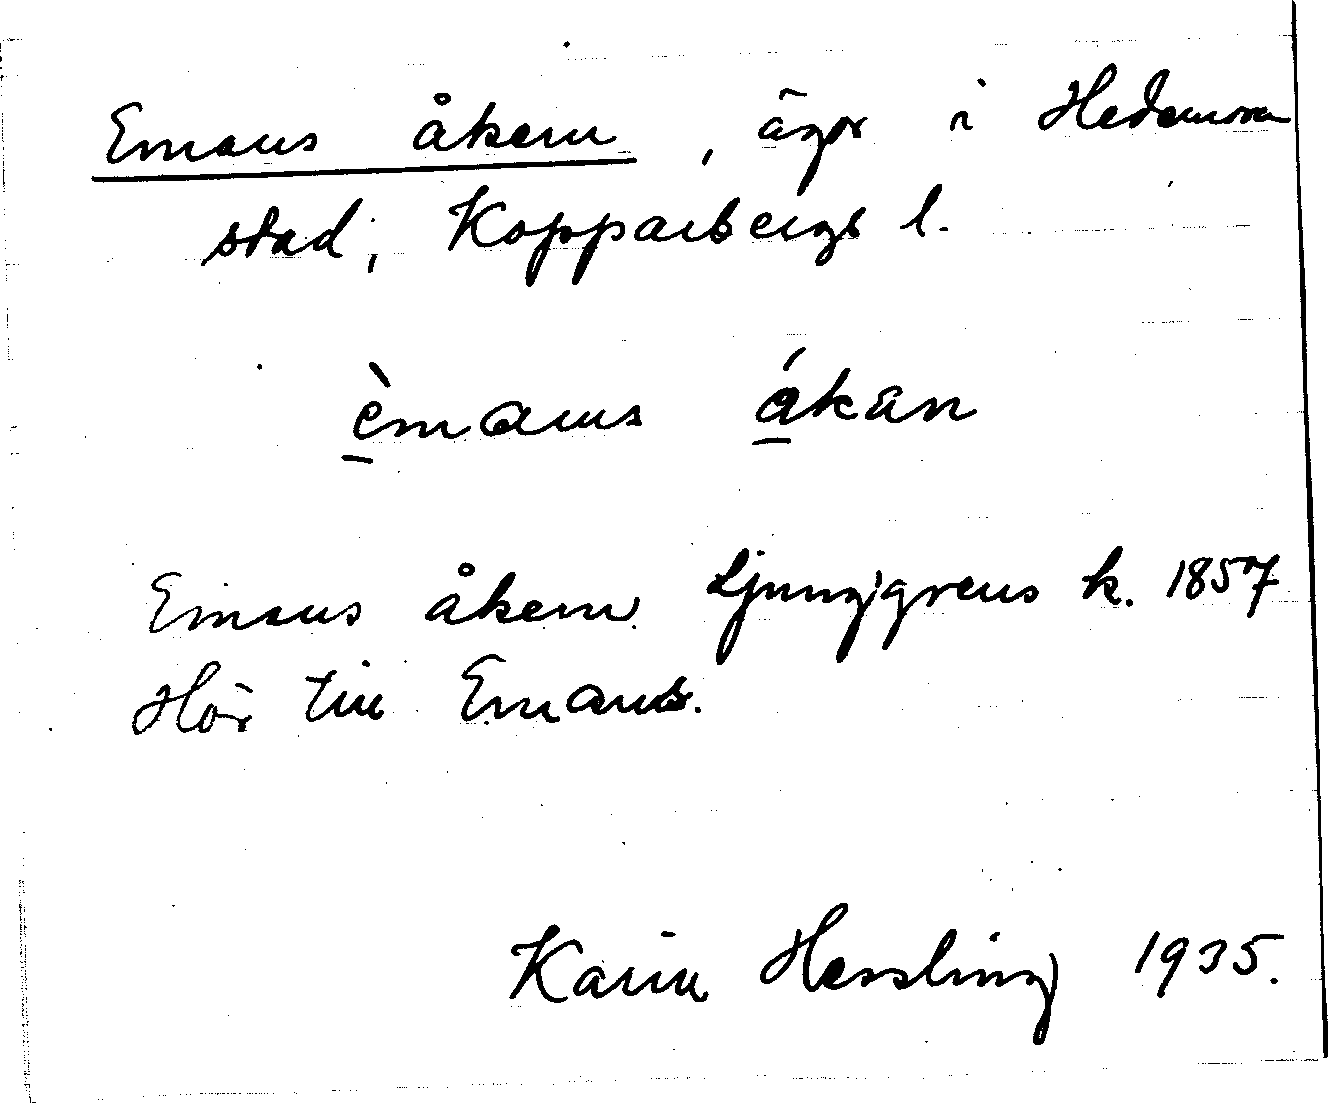 Emaus åkern, ägor i Hedemora
stad, Kopparbergs l.
èmaus åkan
Emaus åkern Ljunggrens k. 1857
Hör till Emaus.
Karin Hessling 1935.